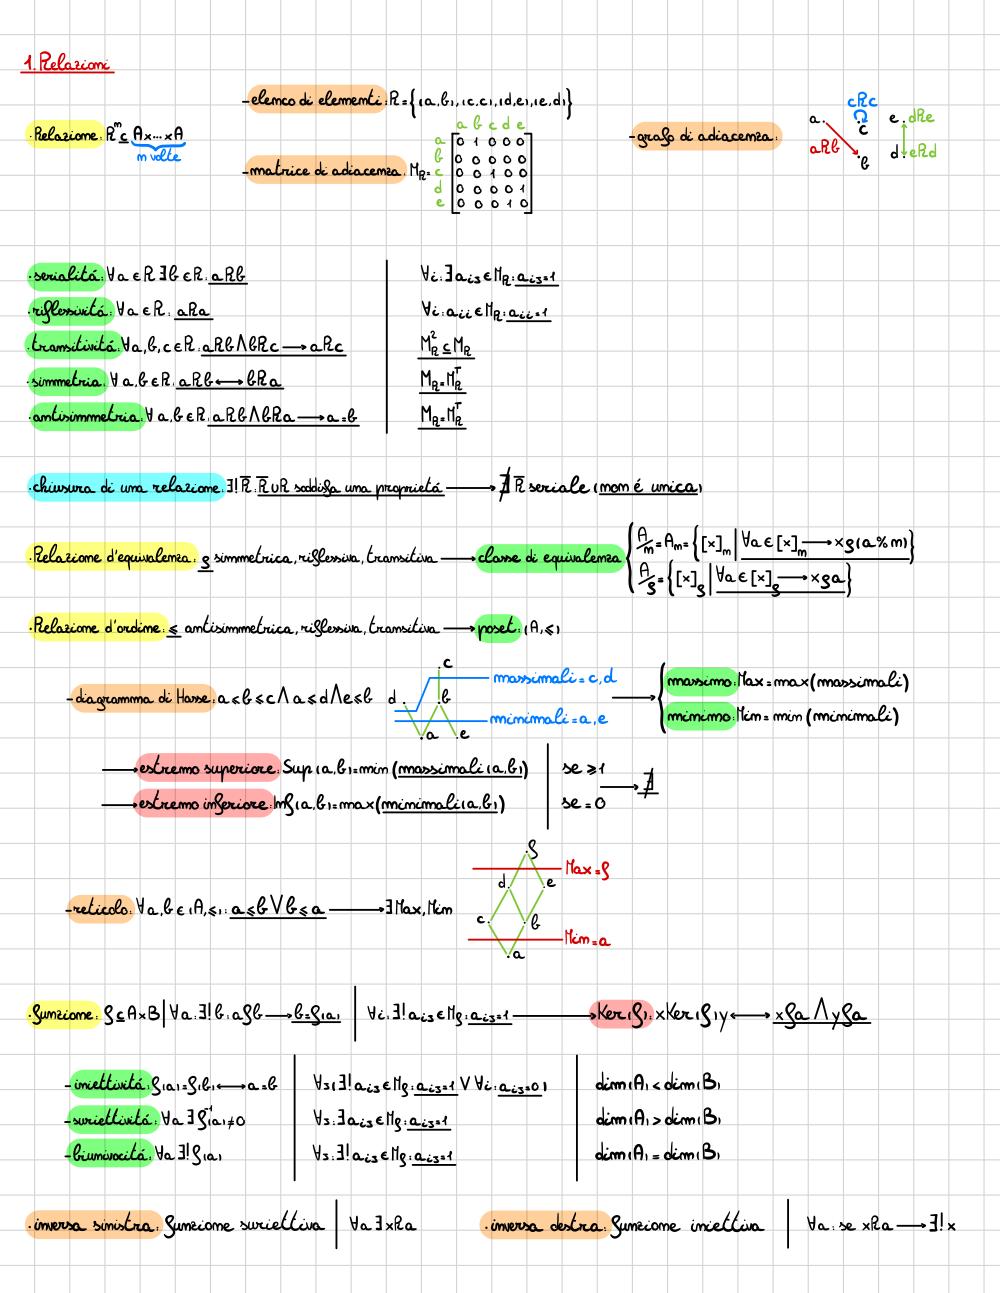 1. Relazioni
-elenco di elementi: R={(a,b),(c,c),(d,e),(e,d)}
·Relazione: Rᵐ ⊆ A×...×A
m volte
-matrice di adiacenza: M_R=
a b c d e
a 0 1 0 0 0
b 0 0 0 0 0
c 0 0 1 0 0
d 0 0 0 0 1
e 0 0 0 1 0
-grafo di adiacenza:
cRc
a. c e. dRe
aRb b d. eRd
·serialitá: ∀a∈R ∃b∈R: aRb | ∀i: ∃aᵢⱼ∈M_R: aᵢⱼ=1
·riflessivitá: ∀a∈R: aRa | ∀i: aᵢᵢ∈M_R: aᵢᵢ=1
·transitivitá: ∀a,b,c∈R: aRb∧bRc⟶aRc | M_R² ⊆ M_R
·simmetria: ∀a,b∈R: aRb⟷bRa | M_R=M_Rᵀ
·antisimmetria: ∀a,b∈R: aRb∧bRa⟶a=b | M_R=M_Rᵀ
·chiusura di una relazione: ∃! R̅: R̅∪R soddisfa una proprietá ⟶ ∄ R̅ seriale (non é unica)
·Relazione d'equivalenza: ρ simmetrica, riflessiva, transitiva ⟶ classe di equivalenza
A/m=Aₘ={[x]ₘ | ∀a∈[x]ₘ⟶xρ(a%m)}
A/ρ={[x]ρ | ∀a∈[x]ρ⟶xρa}
·Relazione d'ordine: ≤ antisimmetrica, riflessiva, transitiva ⟶ poset: (A,≤)
-diagramma di Hasse: a≤b≤c∧a≤d∧e≤b
c
d b
a e
massimali=c,d
minimali=a,e
⟶ massimo: Max=max(massimali)
minimo: Min=min(minimali)
⟶ estremo superiore: Sup(a,b)=min(massimali(a,b)) | se ≥1
⟶ estremo inferiore: Inf(a,b)=max(minimali(a,b)) | se =0 ⟶ ∄
-reticolo: ∀a,b∈(A,≤): a≤b∨b≤a ⟶ ∃Max,Min
f
d e
c b
a
Max=f
Min=a
·funzione: f⊆A×B | ∀a: ∃!b: afb⟶b=f(a) | ∀i: ∃!aᵢⱼ∈M_f: aᵢⱼ=1 ⟶ Ker(f): xKer(f)y⟷xfa∧yfa
-iniettivitá: f(a)=f(b)⟷a=b | ∀j(∃!aᵢⱼ∈M_f: aᵢⱼ=1 ∨ ∀i: aᵢⱼ=0) | dim(A)<dim(B)
-suriettivitá: ∀a ∃f⁻¹(a)≠0 | ∀j: ∃aᵢⱼ∈M_f: aᵢⱼ=1 | dim(A)>dim(B)
-biunivocitá: ∀a ∃!f(a) | ∀j: ∃!aᵢⱼ∈M_f: aᵢⱼ=1 | dim(A)=dim(B)
·inversa sinistra: funzione suriettiva | ∀a ∃xRa
·inversa destra: funzione iniettiva | ∀a: se xRa⟶∃!x